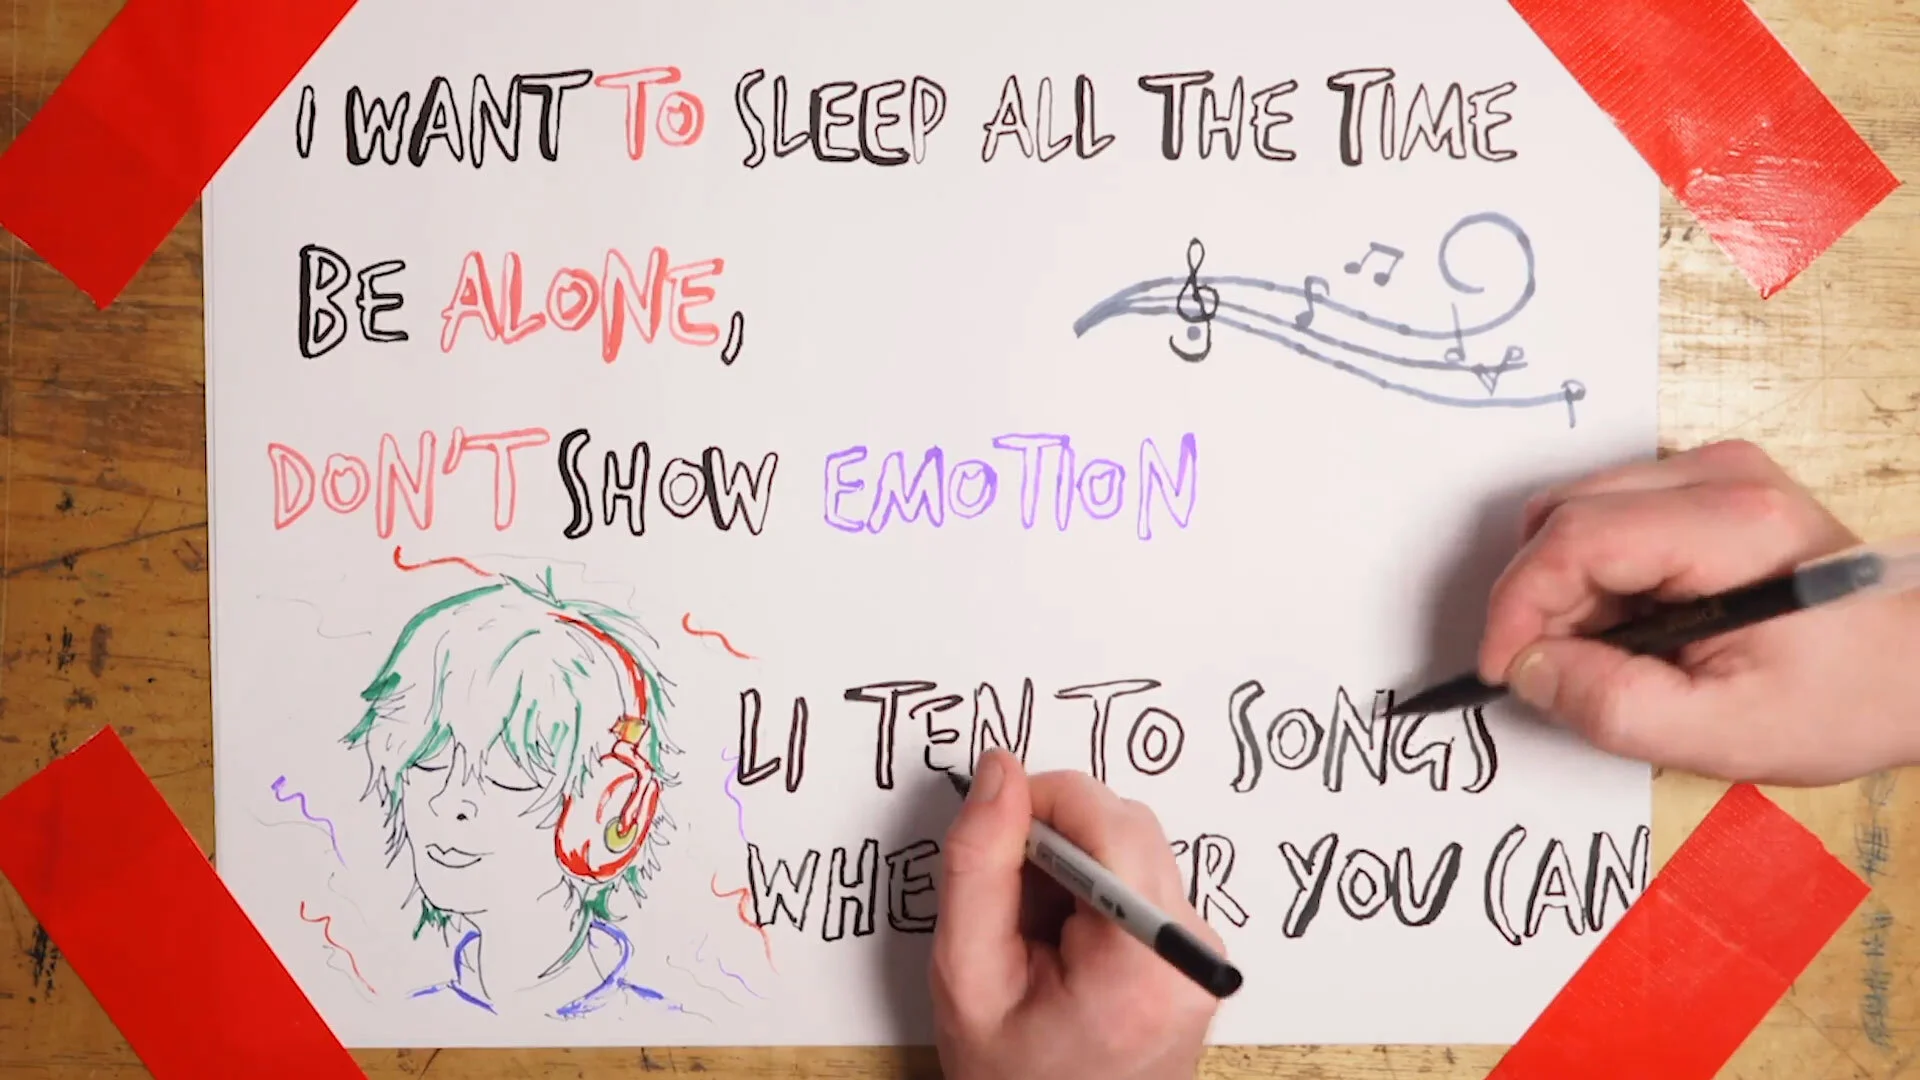 I WANT TO SLEEP ALL THE TIME
BE ALONE,
DON'T SHOW EMOTION
LI TEN TO SONGS
YOU CAN